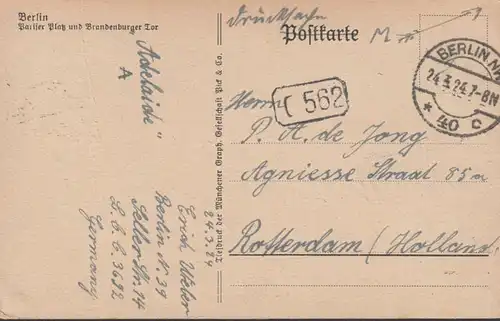 Berlin
Pariser Platz und Brandenburger Tor
Drucksache
Postkarte
BERLIN N
24.3.24.7-8N
* 40 c
562
Herrn
P. A. de Jong
Agniesse Straat 85a
Rotterdam (Holland)
"Adelaide"
A
24.3.24
Erich Weber
Berlin N. 39
Sellerstr. 14
L. C. C. 3692
Germany
Tiefdruck der Münchener Graph. Gesellschaft Pick & Co.